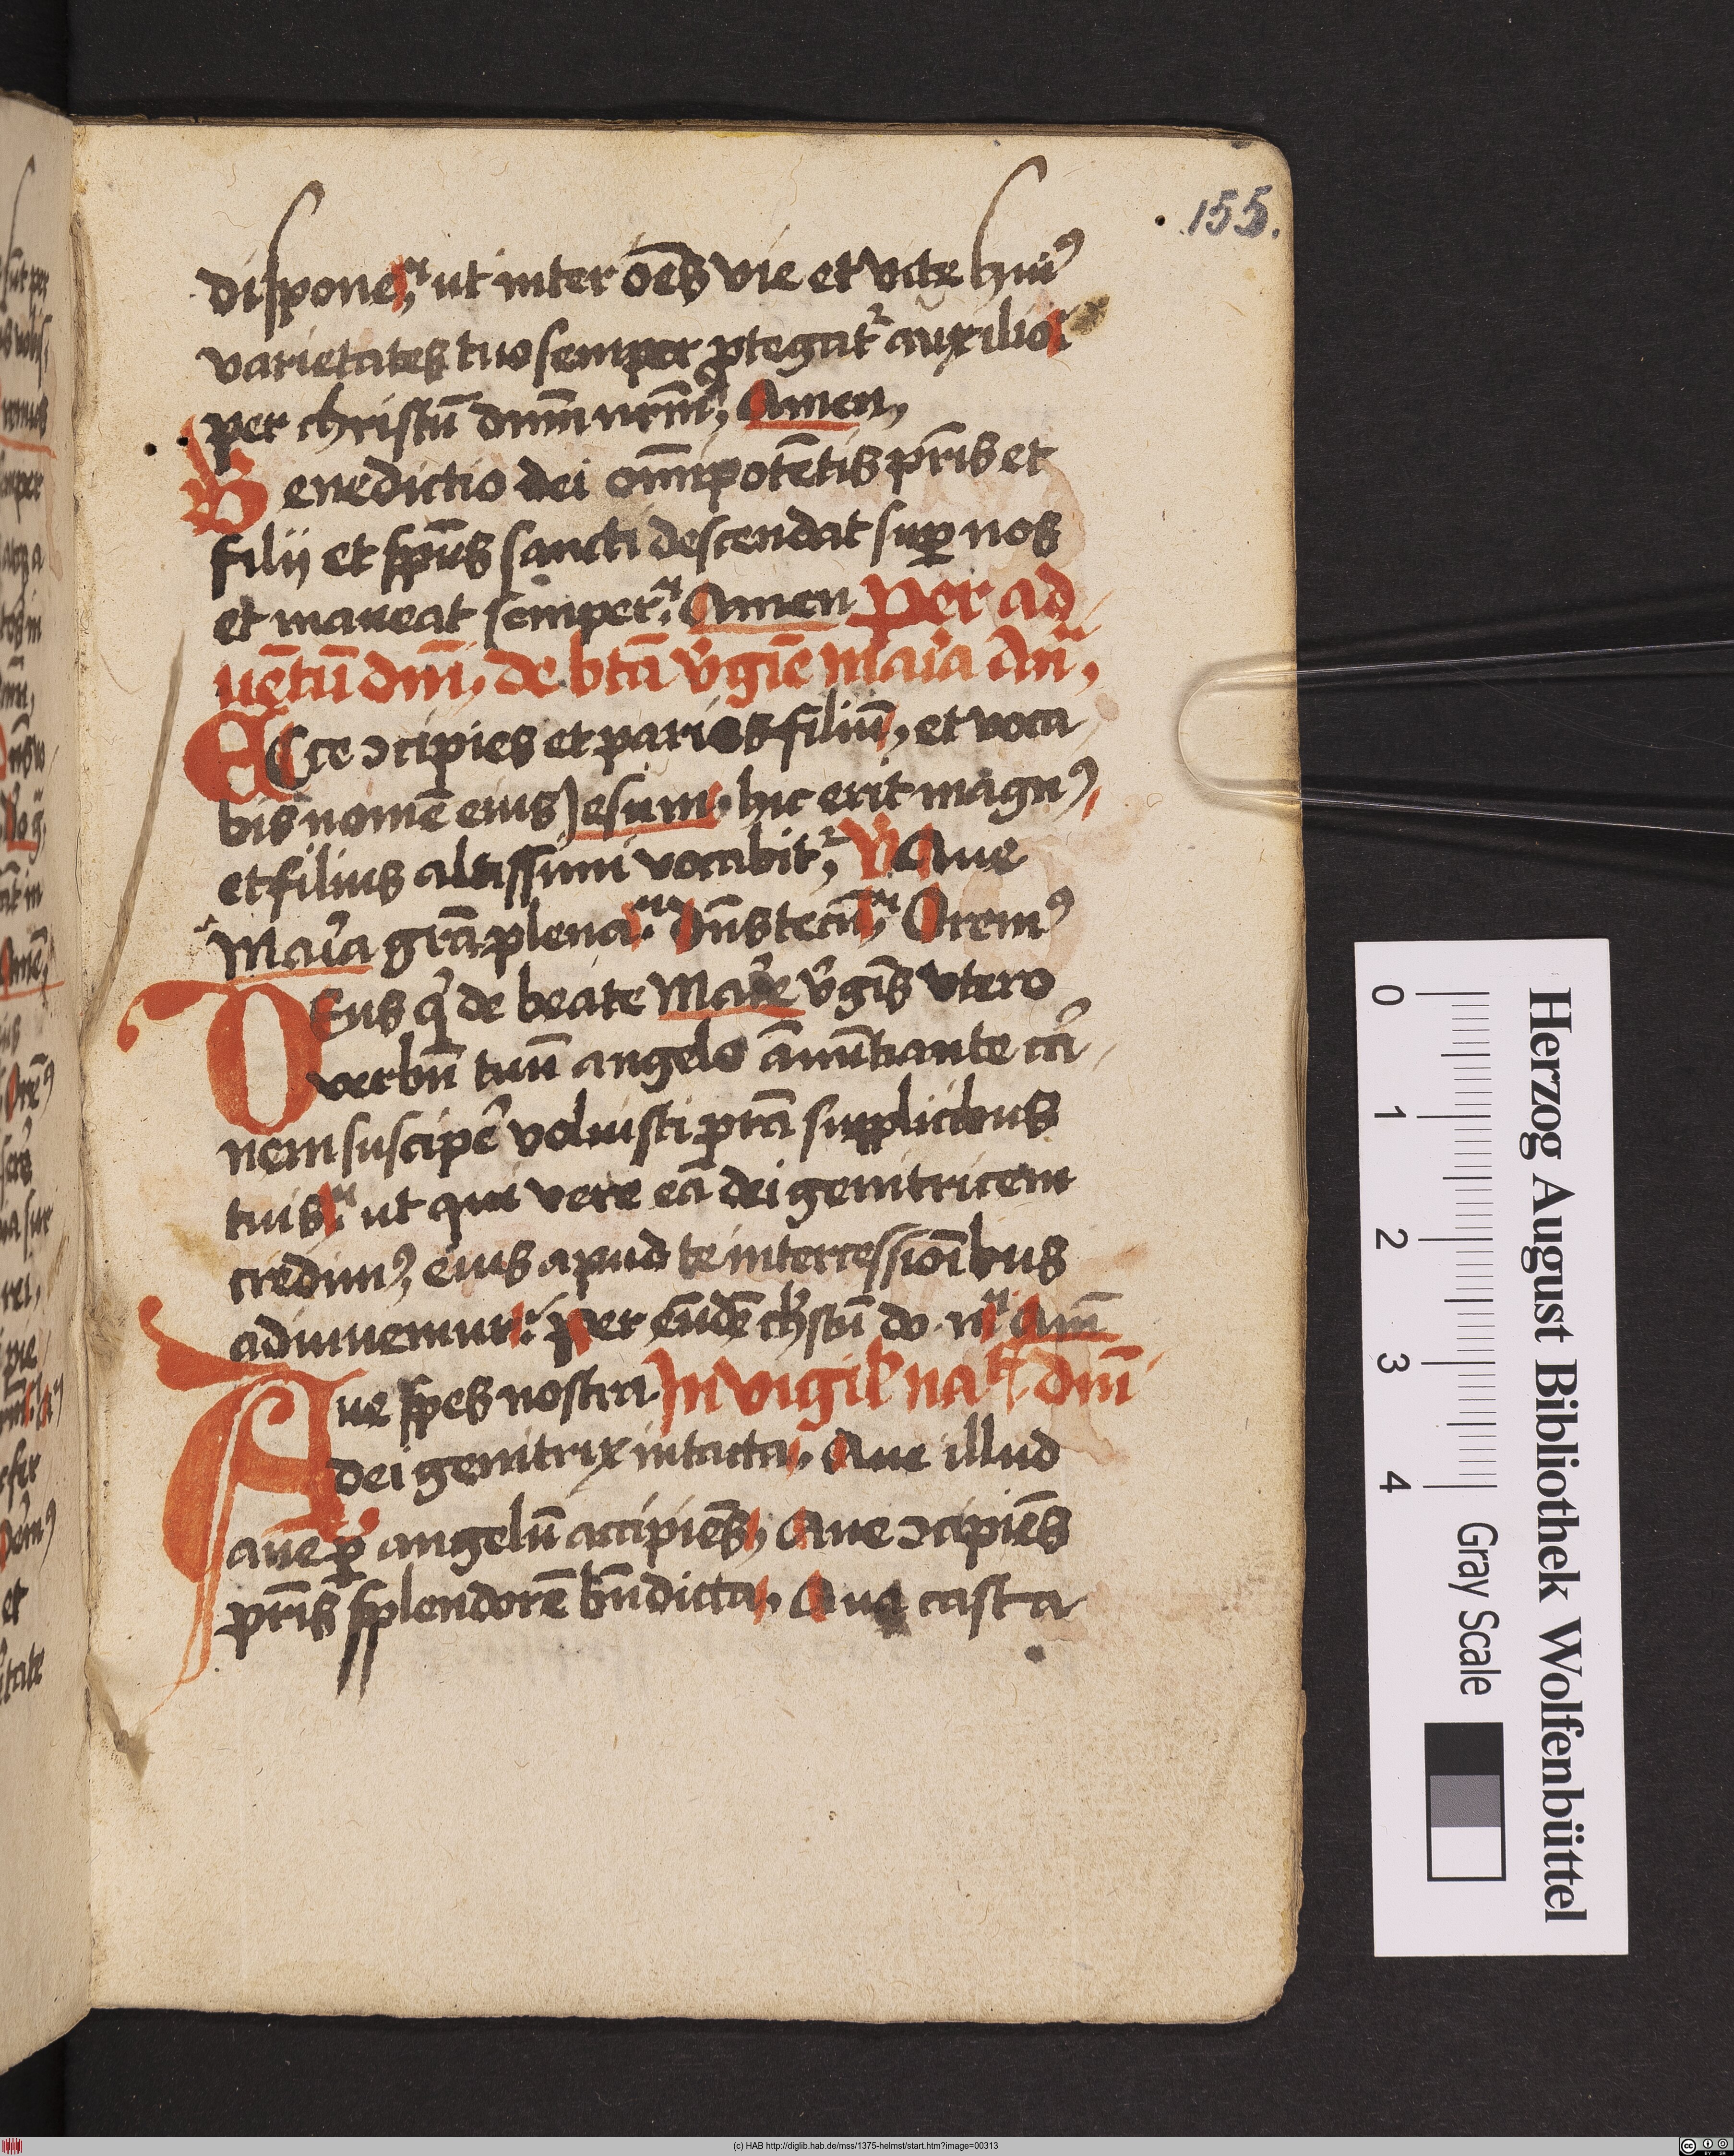 155.
dispone, ut inter oēs vie et vite huiꝰ
varietates tuo semper ꝓtegat᷑ auxilio
per christū dnm̄ nrm̄, Amen,
Benedictio dei om̄ipotētis pr̄is et
filij et sp̄us sancti descendat suꝑ nos
et maneat semper. Amen Per ad
uētū dnī, de btā v̓gīe maīa An̄,
ECce ↄcipies et paries filiū, et voca
bis nomē eius Jesum, hic erit magnꝰ,
et filius altissimi vocabit᷑, V̓ Aue
Maīa gr̄a plena. Dn̄s tecū, Oremꝰ
DEus q̓ de beate Maīe v̓gīs vtero
verbū tuū angelo ān̄ūtiante car
nem suscipe᷑ voluisti pr̄a supplicibus
tuis. ut qui vere eā dei genitricem
credimꝰ, eius apud te intercessiōibus
adiuuemur. Per eūdē chr̄stū do. n. Am̄
Aue spes nostra In vigil̓ nat̓ dnī
dei genitrix intacta, Aue illud
aue ꝑ angelū accipiēs, Aue ↄcipiēs
pr̄is splendorē bn̄dicta, Aue casta
Herzog August Bibliothek Wolfenbüttel
0 1 2 3 4 Gray Scale
(c) HAB http://diglib.hab.de/mss/1375-helmst/start.htm?image=00313